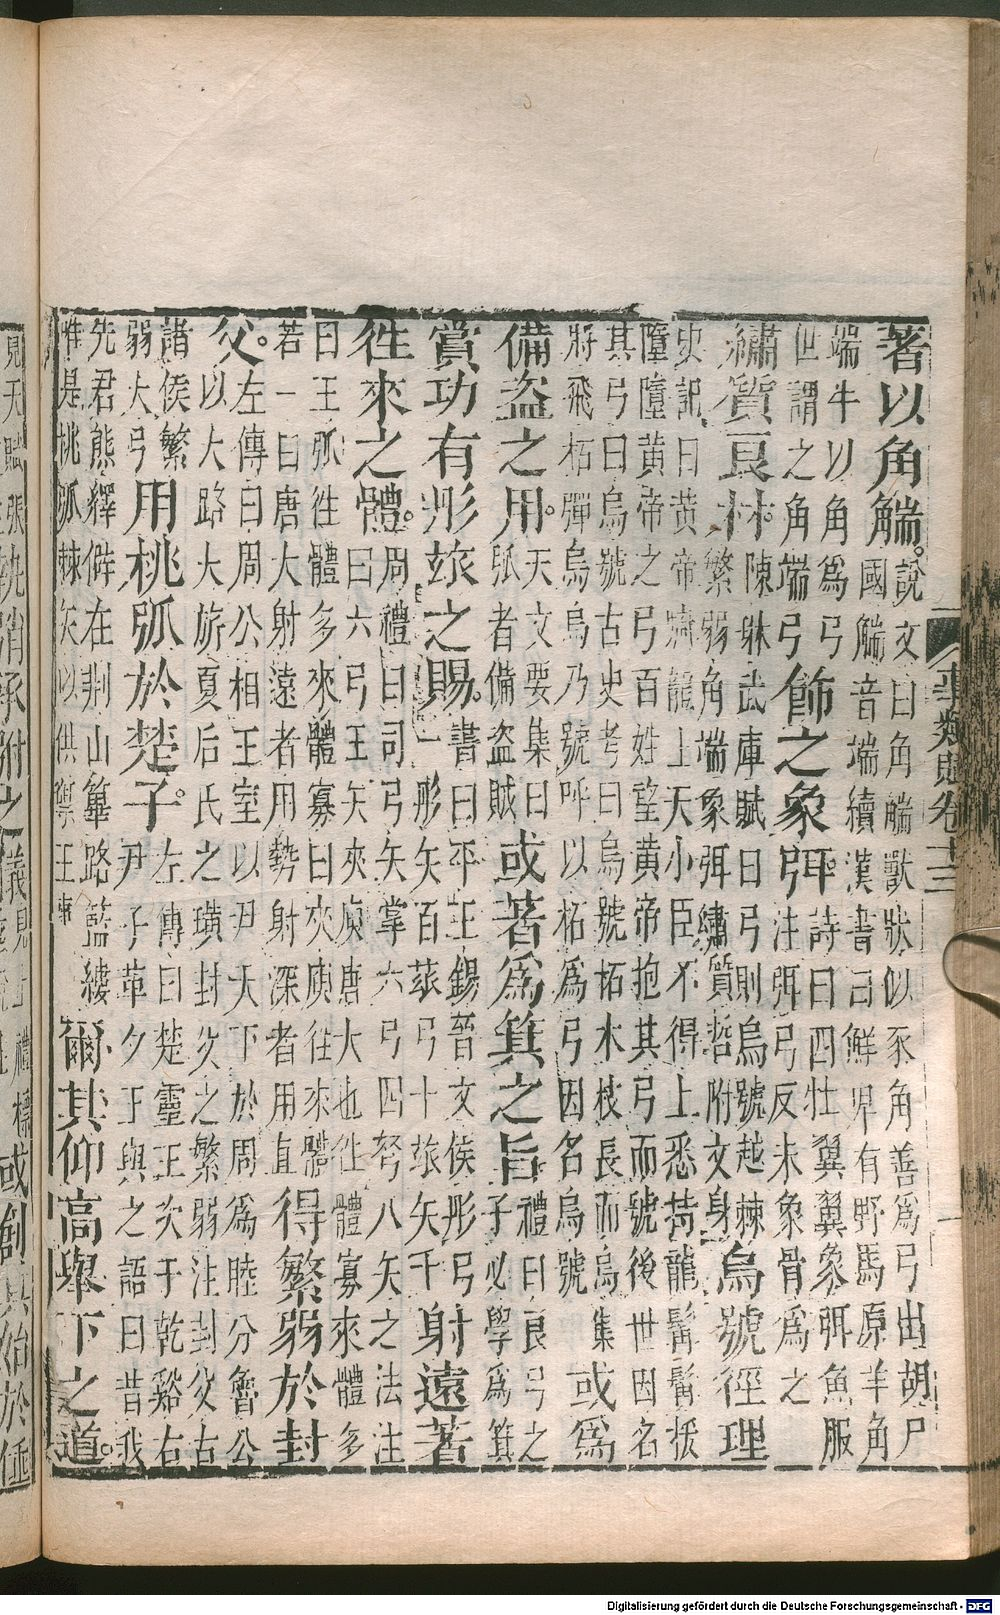 事類賦卷十三
著以角䚟。說文曰角䚟獸狀似豕角善為弓出胡尸
國䚟音端續漢書曰鮮卑有野馬原羊角
端牛以角為弓
世謂之角端弓
飾之象弭。詩曰四牡翼翼象弭魚服
注弭弓反末象骨為之
繡質良材。陳琳武庫賦曰弓則烏號越棘
繁弱角端象弭繡質晢附文身
烏號徑理
史記曰黃帝騎龍上天小臣不得上悉持龍髯髯拔
墮墮黃帝之弓百姓望黃帝抱其弓而號後世因名
其弓曰烏號古史考曰烏號柘木枝長而烏集
將飛柘彈烏烏乃號呼以柘為弓因名烏號
或為
備盜之用。天文要集曰
弧者備盜賊
或著為箕之旨。禮曰良弓之
子必學為箕
賞功有彤玈之賜。書曰平王錫晉文侯彤弓
一彤矢百玈弓十玈矢千
射遠著
徃來之體。周禮曰司弓矢掌六弓四弩八矢之法注
曰六弓王矢夾庾唐大也徃體寡來體多
曰王弧徃體多來體寡曰夾庾徃來體
若一曰唐大射遠者用勢射深者用直
得繁弱於封
父。左傳曰周公相王室以尹天下於周為睦分魯公
以大路大旂夏后氏之璜封父之繁弱注封父古
諸侯繁
弱大弓
用桃弧於楚子。左傳曰楚靈王次于乾谿右
尹子革夕王與之語曰昔我
先君熊繹僻在荊山篳路藍縷
惟是桃弧棘矢以供禦王事
爾其仰高舉下之道。
或創其始於倕
Digitalisierung gefördert durch die Deutsche Forschungsgemeinschaft - DFG